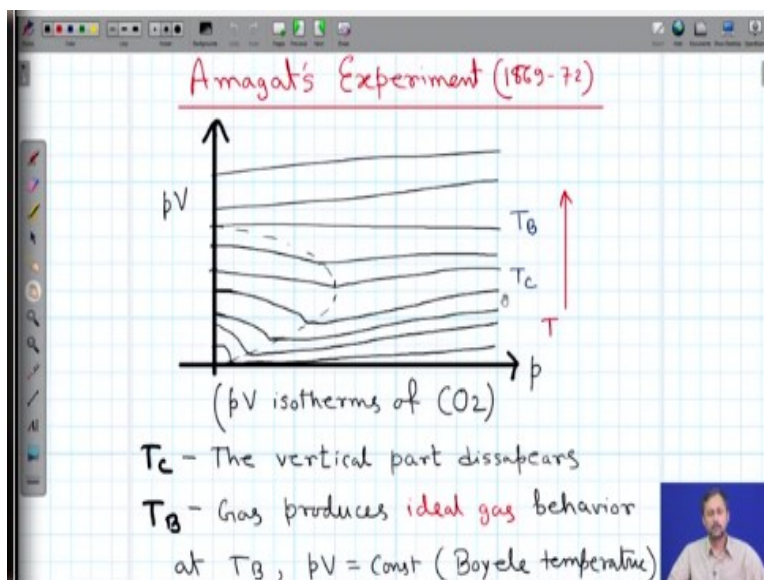 Amagat's Experiment (1869-72)
pV
TB
TC
T
p
(pV isotherms of CO2)
TC - The vertical part dissapears
TB - Gas produces ideal gas behavior
at TB, pV = Const (Boyele temperature)